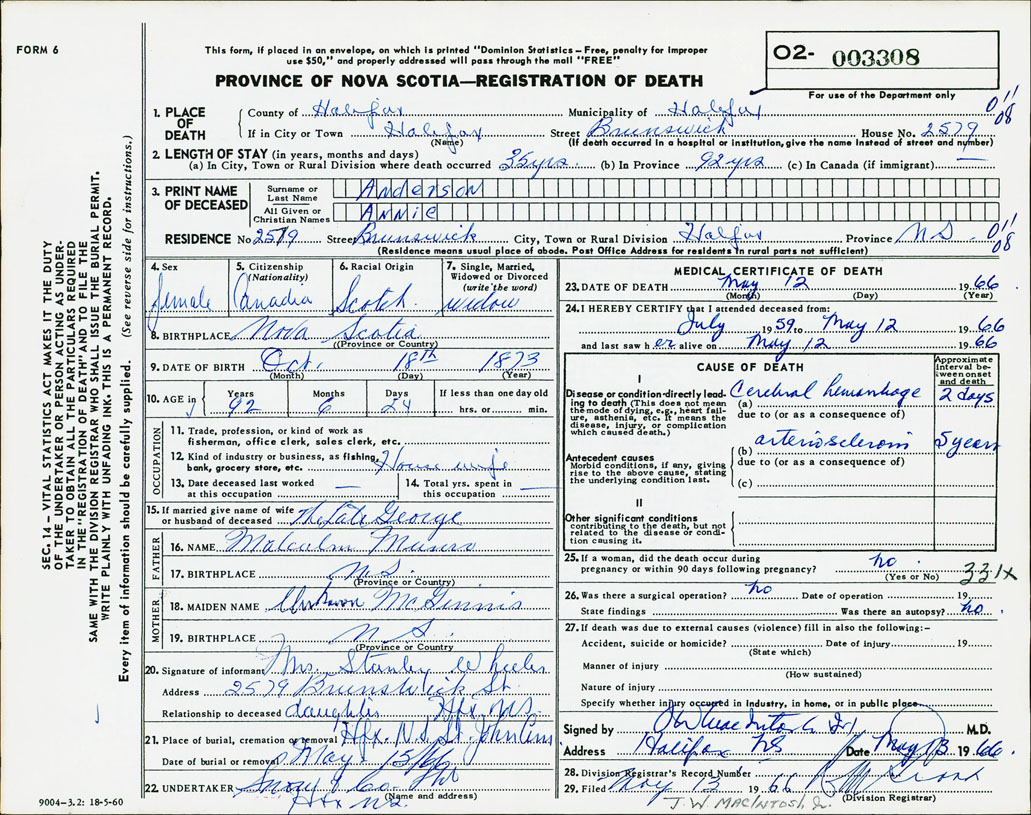 FORM 6
This form, if placed in an envelope, on which is printed "Dominion Statistics – Free, penalty for improper
use $50," and properly addressed will pass through the mail "FREE"
PROVINCE OF NOVA SCOTIA—REGISTRATION OF DEATH
02- 003308
For use of the Department only
SEC. 14 – VITAL STATISTICS ACT MAKES IT THE DUTY
OF THE UNDERTAKER OR PERSON ACTING AS UNDER-
TAKER TO OBTAIN ALL THE PARTICULARS REQUIRED
IN THE "REGISTRATION OF DEATH" AND TO FILE THE
SAME WITH THE DIVISION REGISTRAR WHO SHALL ISSUE THE BURIAL PERMIT.
WRITE PLAINLY WITH UNFADING INK. THIS IS A PERMANENT RECORD.
Every item of information should be carefully supplied. (See reverse side for instructions.)
1. PLACE OF DEATH County of Halifax Municipality of Halifax 011
If in City or Town Halifax Street Brunswick House No. 2579 08
(Name) (If death occurred in a hospital or institution, give the name instead of street and number)
2. LENGTH OF STAY (in years, months and days)
(a) In City, Town or Rural Division where death occurred 35 yrs. (b) In Province 92 yrs (c) In Canada (if immigrant) —
3. PRINT NAME OF DECEASED
Surname or Last Name Anderson
All Given or Christian Names ANNIE
RESIDENCE No 2579 Street Brunswick City, Town or Rural Division Halifax Province N.S. 011 08
(Residence means usual place of abode. Post Office Address for residents in rural parts not sufficient)
4. Sex female
5. Citizenship (Nationality) Canadia
6. Racial Origin Scotch
7. Single, Married, Widowed or Divorced (write the word) widow
8. BIRTHPLACE Nova Scotia
(Province or Country)
9. DATE OF BIRTH Oct. 18th 1873
(Month) (Day) (Year)
10. AGE in Years 92 Months 6 Days 24 If less than one day old hrs. or min.
OCCUPATION
11. Trade, profession, or kind of work as
fisherman, office clerk, sales clerk, etc.
12. Kind of industry or business, as fishing,
bank, grocery store, etc. House wife
13. Date deceased last worked
at this occupation —
14. Total yrs. spent in
this occupation —
15. If married give name of wife
or husband of deceased The Late George
FATHER
16. NAME Malcolm Munro
17. BIRTHPLACE N.S.
(Province or Country)
MOTHER
18. MAIDEN NAME Unknown McGinnis
19. BIRTHPLACE N.S.
(Province or Country)
20. Signature of informant Mrs. Stanley Wheeler
Address 2579 Brunswick St
Relationship to deceased daughter Hfx N.S.
21. Place of burial, cremation or removal Hfx. N.S. St. Johns Cem
Date of burial or removal May 15/66
22. UNDERTAKER Snow & Co.
Hfx N.S.
(Name and address)
9004–3.2: 18-5-60
MEDICAL CERTIFICATE OF DEATH
23. DATE OF DEATH May 12 1966
(Month) (Day) (Year)
24. I HEREBY CERTIFY that I attended deceased from:
July 1959 to May 12 1966
and last saw her alive on May 12 1966
CAUSE OF DEATH
Approximate interval between onset and death
I
Disease or condition directly lead-
ing to death (This does not mean
the mode of dying, e.g., heart fail-
ure, asthenia, etc. It means the
disease, injury, or complication
which caused death.)
(a) Cerebral hemorrhage 2 days
due to (or as a consequence of)
(b) arteriosclerosis 5 years
due to (or as a consequence of)
(c)
Antecedent causes
Morbid conditions, if any, giving
rise to the above cause, stating
the underlying condition last.
II
Other significant conditions
contributing to the death, but not
related to the disease or condi-
tion causing it.
25. If a woman, did the death occur during
pregnancy or within 90 days following pregnancy? no
(Yes or No) 331X
26. Was there a surgical operation? no Date of operation 19
State findings Was there an autopsy? no
27. If death was due to external causes (violence) fill in also the following:–
Accident, suicide or homicide? Date of injury 19
(State which)
Manner of injury
(How sustained)
Nature of injury
Specify whether injury occurred in industry, in home, or in public place
Signed by M.D.
Address Halifax NS Date May 13 1966
28. Division Registrar's Record Number
29. Filed May 13 1966
(Division Registrar)
J. W. MACINTOSH, Jr.